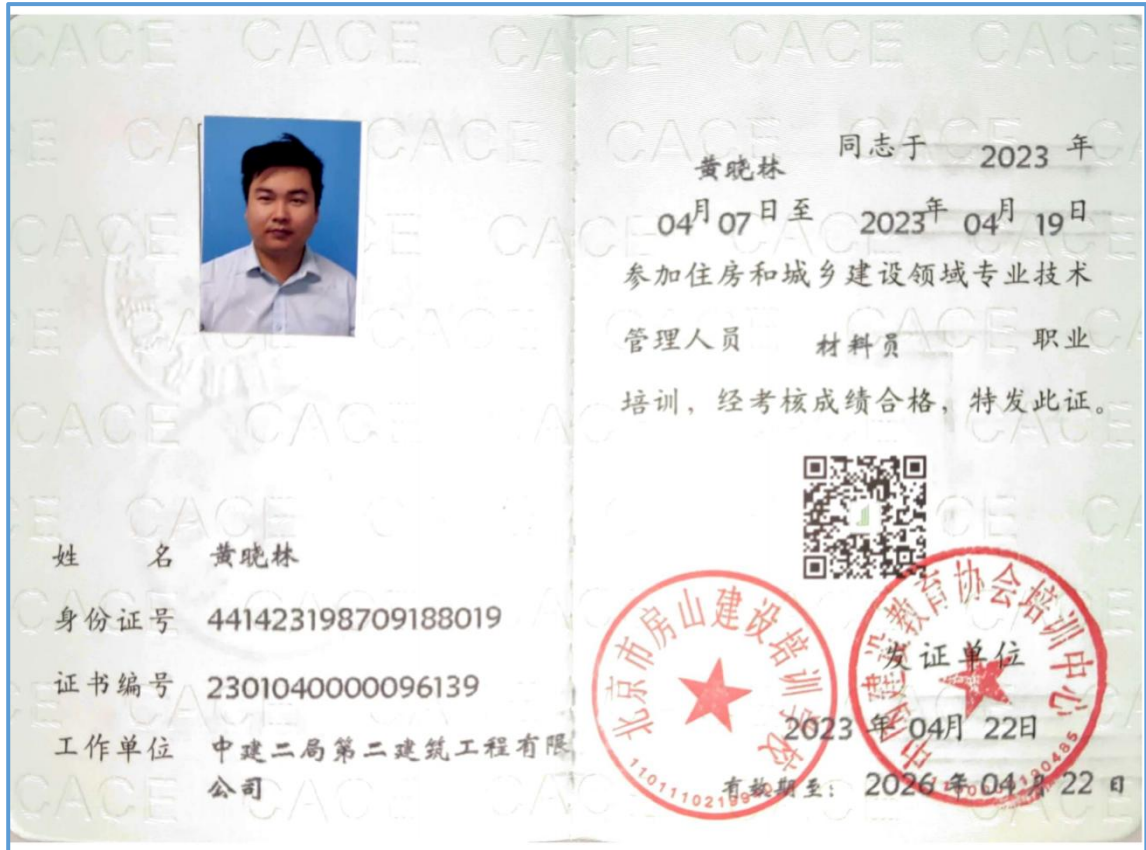 姓 名 黄晓林
身份证号 441423198709188019
证书编号 2301040000096139
工作单位 中建二局第二建筑工程有限
公司
黄晓林 同志于 2023 年
04月 07日至 2023年 04月 19日
参加住房和城乡建设领域专业技术
管理人员 材料员 职业
培训，经考核成绩合格，特发此证。
北京市房山建设培训学校
中国建设教育协会培训中心
发证单位
2023 年 04月 22日
有效期至： 2026 年 04 月 22 日
CACE